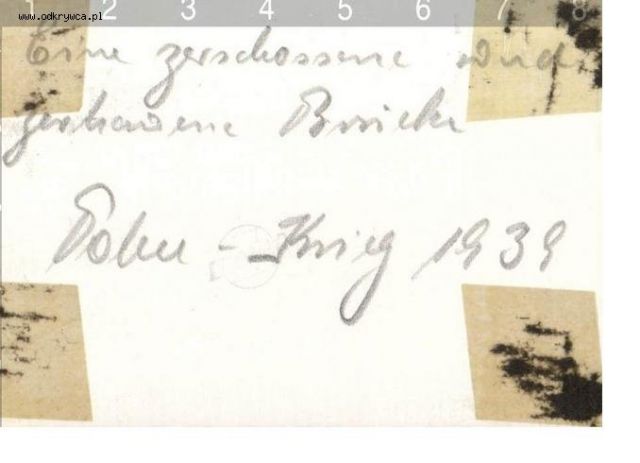 1 2 3 4 5 6 7 8
www.odkrywca.pl
Eine zerschossene und
zerhauene Brücke
Polen - Krieg 1939